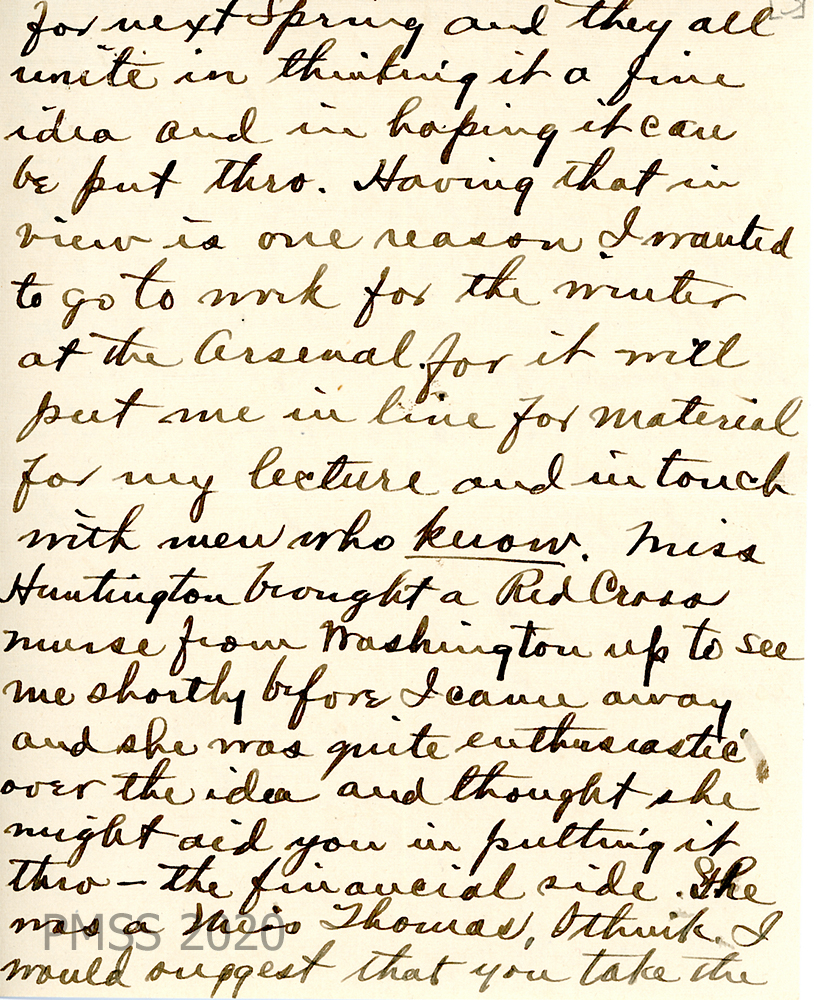 for next Spring and they all
unite in thinking it a fine
idea and in hoping it can
be put thro. Having that in
view is one reason I wanted
to go to work for the winter
at the Arsenal, for it will
put me in line for material
for my lecture and in touch
with men who know. Miss
Huntington brought a Red Cross
nurse from Washington up to see
me shortly before I came away
and she was quite enthusiastic
over the idea and thought she
might aid you in putting it
thro – the financial side. She
was a Miss Thomas, I think. I
would suggest that you take the
PMSS 2020